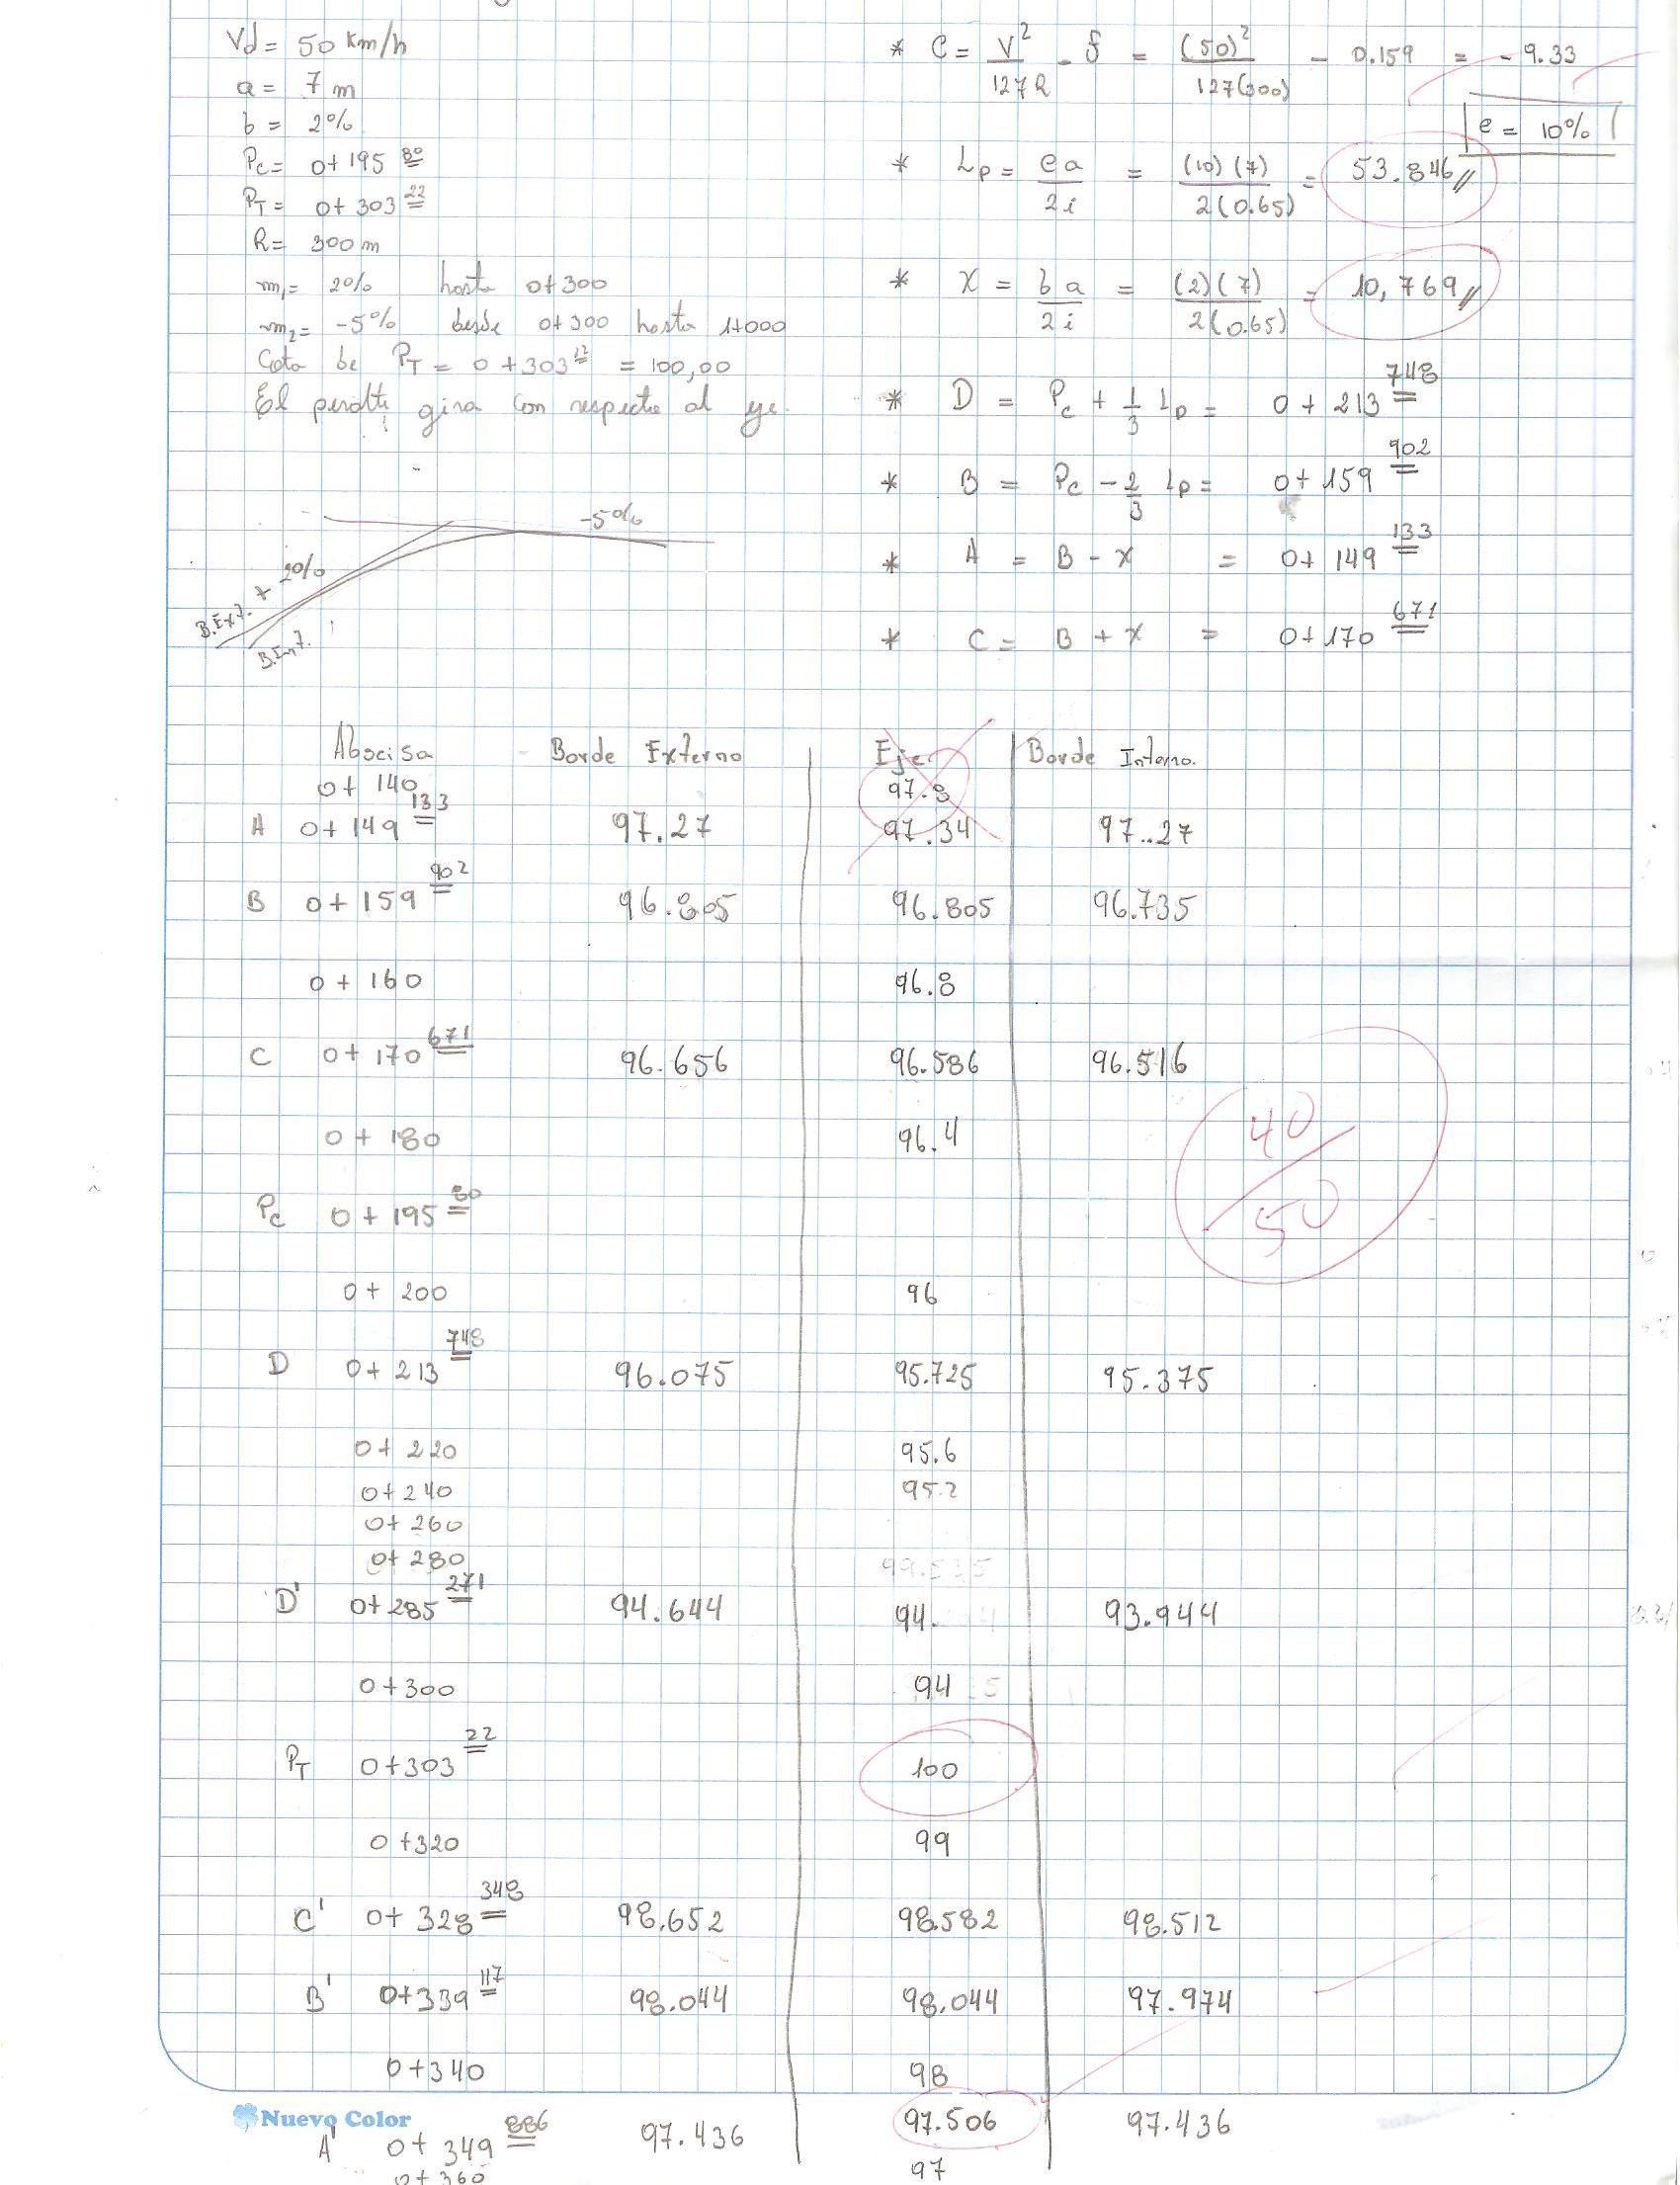 Vd = 50 Km/h
a = 7 m
b = 2%
Pc = 0+195 80
PT = 0+303 22
R = 300 m
m1 = 20% hasta 0+300
m2 = -5% desde 0+300 hasta 1+000
Cota de PT = 0+303 12 = 100,00
El peralte gira con respecto al eje.
* e = V²/127R - f = (50)²/127(300) - 0.159 = -9.33
e = 10%
* Lp = ea/2i = (10)(7)/2(0.65) = 53.846
* X = ba/2i = (2)(7)/2(0.65) = 10,769
* D = Pc + 1/3 Lp = 0+213 748
* B = Pc - 2/3 Lp = 0+159 902
* A = B - X = 0+149 133
* C = B + X = 0+170 671
-5%
B.Ext. + 20%
B.Int.
Abscisa Borde Externo Eje Borde Interno.
0+140 97.8
A 0+149 133 97.27 97.34 97.27
B 0+159 902 96.805 96.805 96.735
0+160 96.8
C 0+170 671 96.656 96.586 96.516
0+180 96.4
40/50
Pc 0+195 80
0+200 96
D 0+213 748 96.075 95.725 95.375
0+220 95.6
0+240 95.2
0+260
0+280 99.535
D' 0+285 271 94.644 94. 93.944
0+300 94
PT 0+303 22 100
0+320 99
C' 0+328 348 98.652 98.582 98.512
B' 0+339 117 98.044 98.044 97.974
0+340 98
Nuevo Color
A' 0+349 886 97.436 97.506 97.436
0+360 97